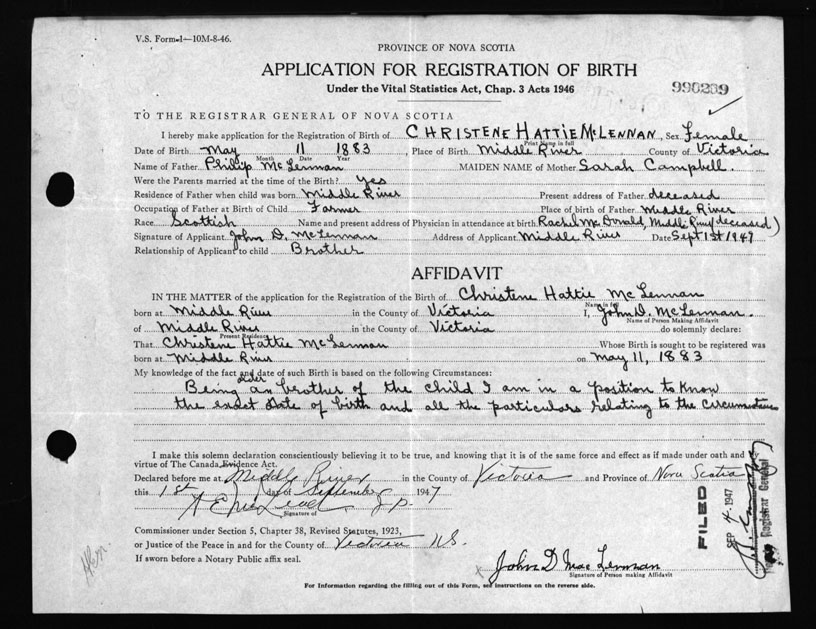 V.S. Form-1—10M-8-46.
PROVINCE OF NOVA SCOTIA
APPLICATION FOR REGISTRATION OF BIRTH
Under the Vital Statistics Act, Chap. 3 Acts 1946
990289
TO THE REGISTRAR GENERAL OF NOVA SCOTIA
I hereby make application for the Registration of Birth of CHRISTENE HATTIE McLENNAN, Sex Female
Print Name in full
Date of Birth May 11 1883, Place of Birth Middle River County of Victoria
Month Date Year
Name of Father Phillip McLennan MAIDEN NAME of Mother Sarah Campbell.
Were the Parents married at the time of the Birth? yes
Residence of Father when child was born Middle River Present address of Father deceased
Occupation of Father at Birth of Child Farmer Place of birth of Father Middle River
Race Scottish Name and present address of Physician in attendance at birth Rachel McDonald, Middle River (deceased)
Signature of Applicant John D. McLennan Address of Applicant Middle River Date Sept 1st 1947
Relationship of Applicant to child Brother
AFFIDAVIT
IN THE MATTER of the application for the Registration of the Birth of Christene Hattie McLennan
Name in full
born at Middle River in the County of Victoria I, John D. McLennan.
Name of Person Making Affidavit
of Middle River in the County of Victoria do solemnly declare:
Present Residence
That Christene Hattie McLennan Whose Birth is sought to be registered was
born at Middle River on May 11, 1883
My knowledge of the fact and date of such Birth is based on the following Circumstances:
Being an older brother of the child I am in a position to know
the exact date of birth and all the particulars relating to the circumstances
I make this solemn declaration conscientiously believing it to be true, and knowing that it is of the same force and effect as if made under oath and
virtue of The Canada Evidence Act.
Declared before me at Middle River in the County of Victoria and Province of Nova Scotia
this 1st day of September 1947
J.P.
Signature of
Commissioner under Section 5, Chapter 38, Revised Statutes, 1923,
or Justice of the Peace in and for the County of Victoria N.S.
If sworn before a Notary Public affix seal.
John D MacLennan
Signature of Person making Affidavit
For Information regarding the filling out of this Form, see instructions on the reverse side.
FILED
SEP 4 1947
Registrar General